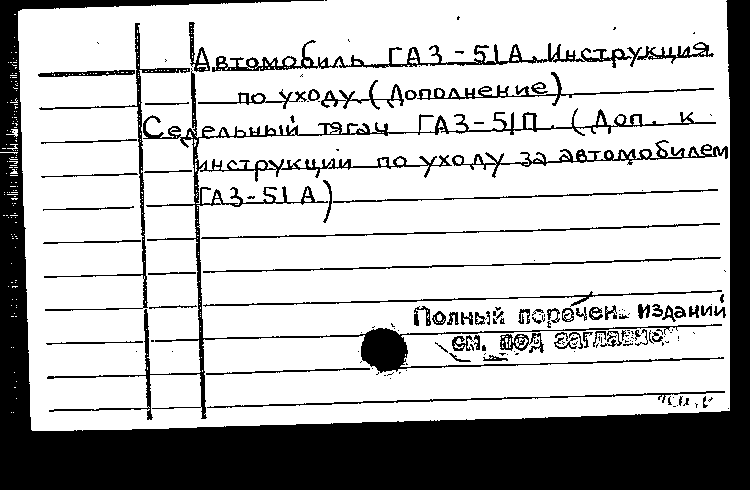 Автомобиль ГАЗ-51А. Инструкция
по уходу. (Дополнение).
Седельный тягач ГАЗ-51П. (Доп. к
инструкции по уходу за автомобилем
ГАЗ-51А)
Полный перечень изданий
см. под заглавием